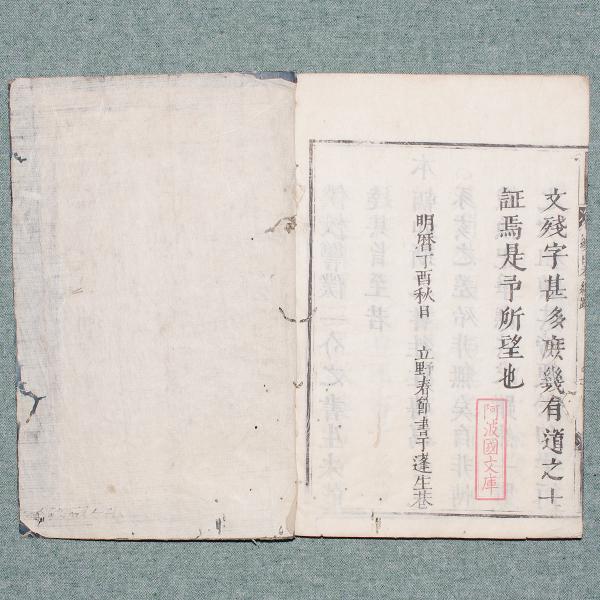 文残字甚多庶幾有道之士
証焉是予所望也
明暦丁酉秋日 立野春節書于蓬生巷
阿波國文庫